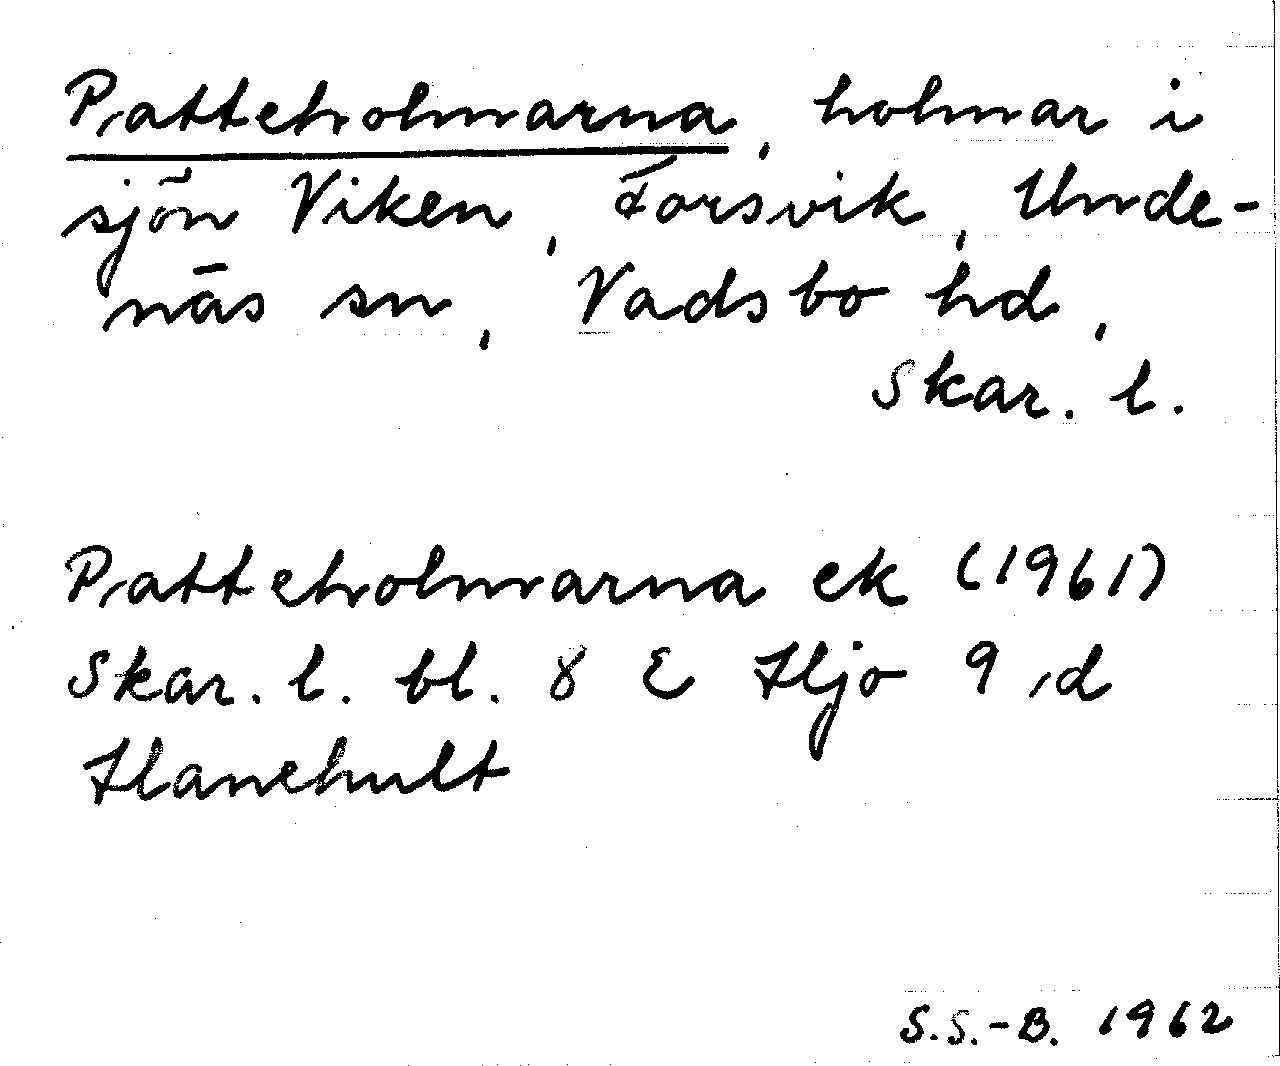 Patteholmarna, holmar i
sjön Viken, Forsvik, Unde-
näs sn, Vadsbo hd,
Skar. l.
Patteholmarna ek (1961)
Skar. l. bl. 8 E Hjo 9 d
Hanehult
S.S.-B. 1962